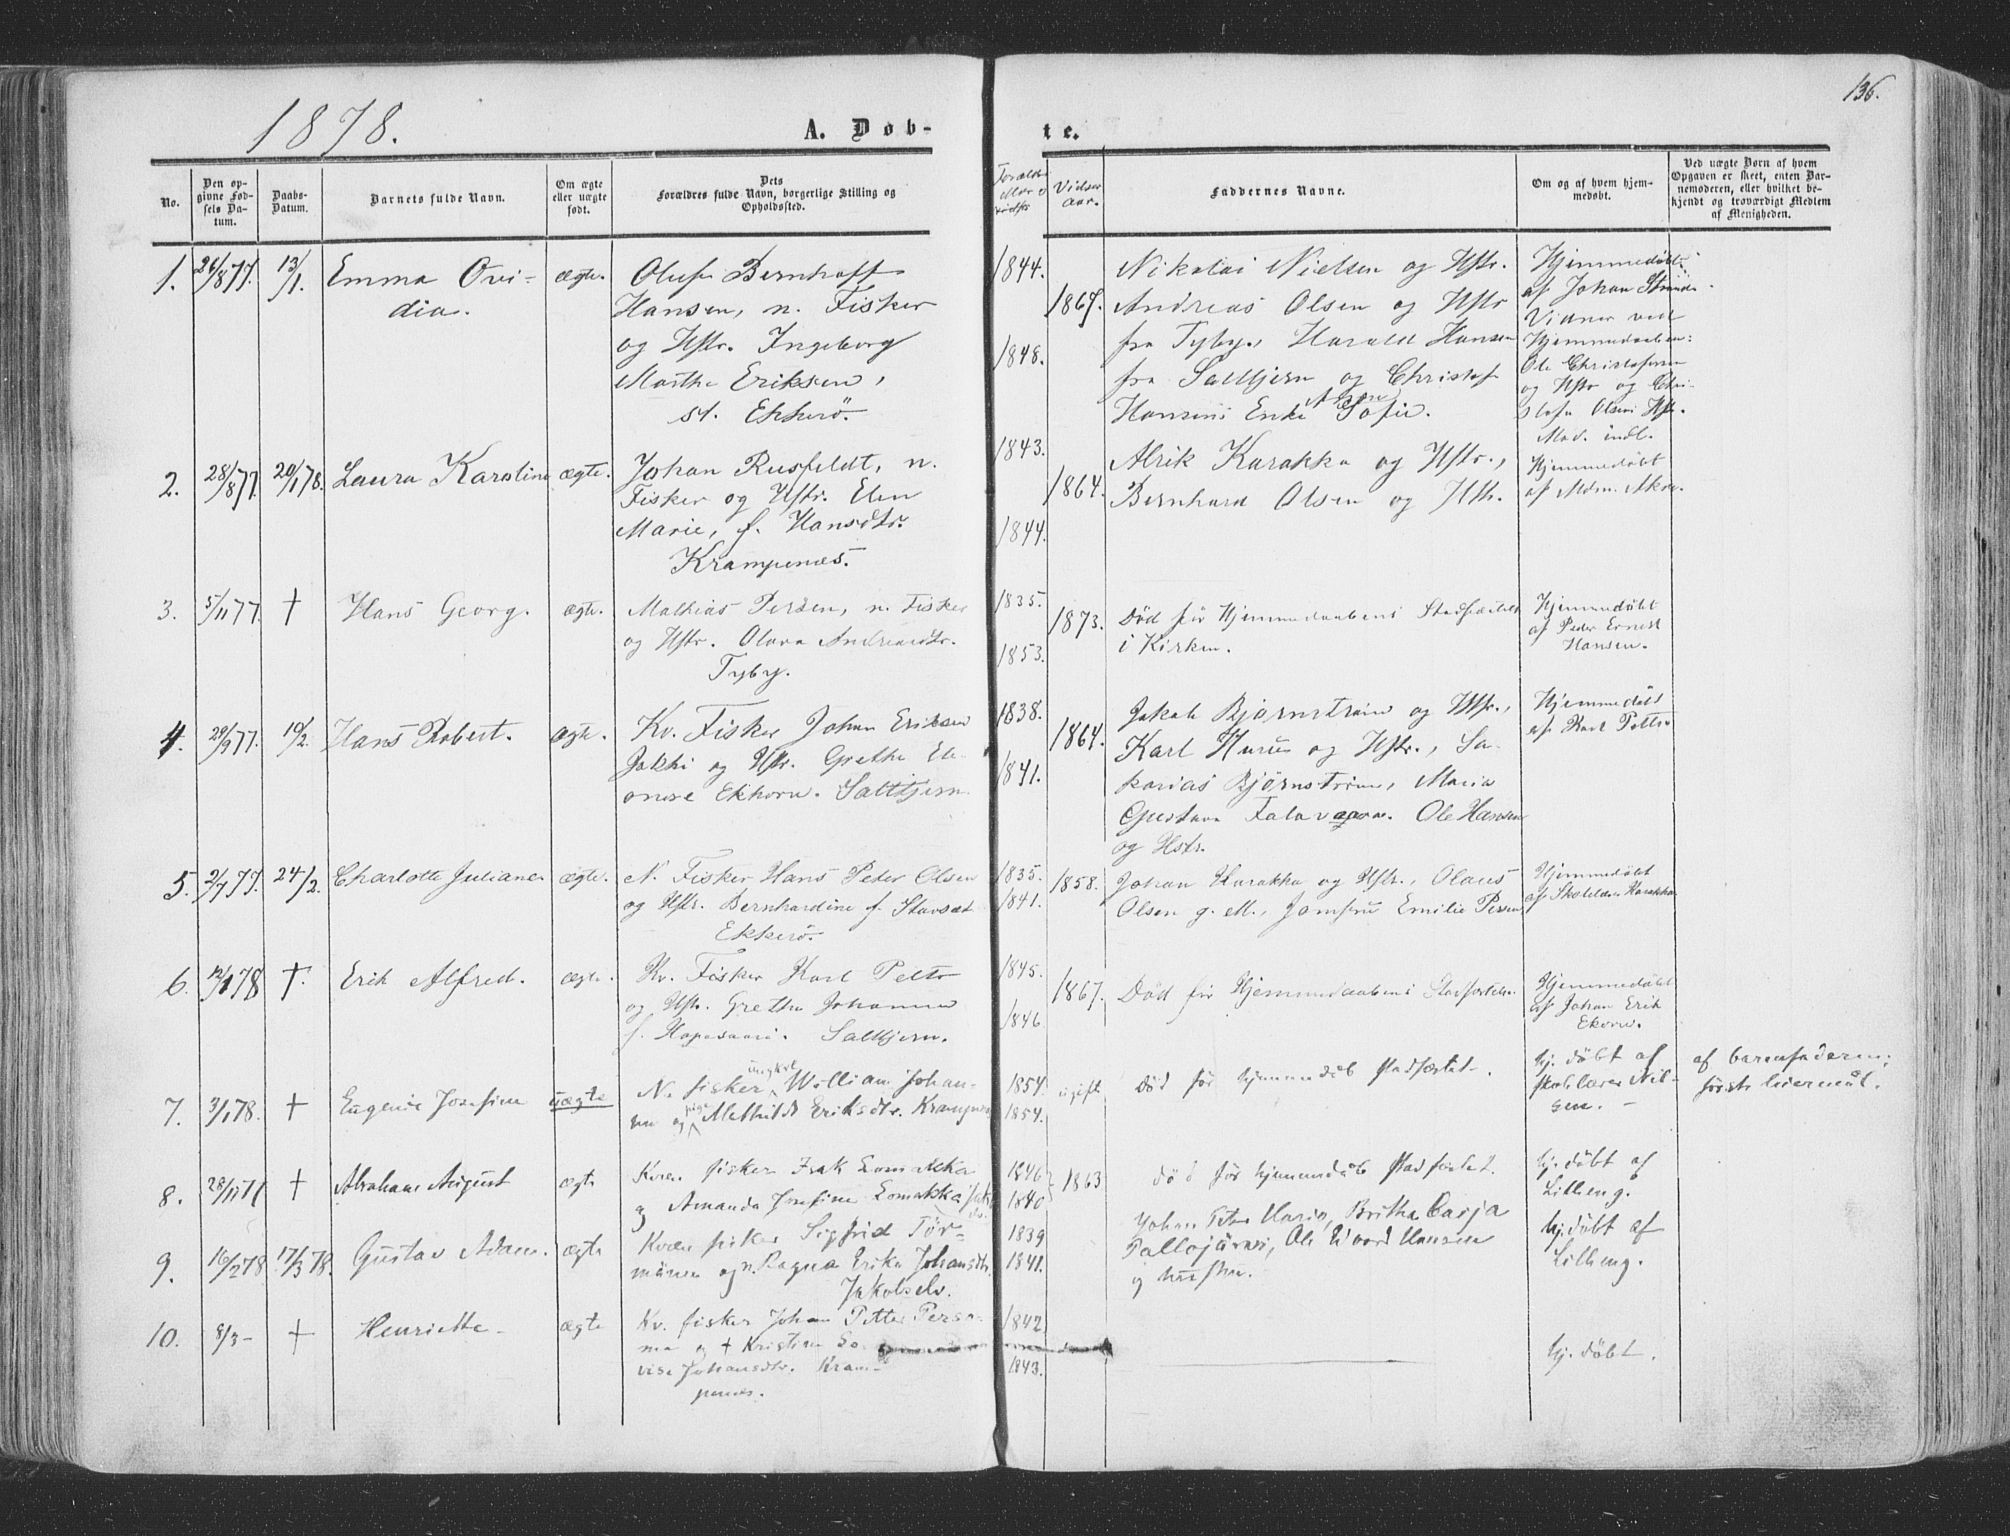 136.
1878.
A. Døb-
te.
No.
Den op-
givne Fød-
sels Da-
tum.
Daabs-
Datum.
Barnets fulde Navn.
Om ægte
eller uægte
født.
Dets
Forældres fulde Navn, borgerlige Stilling og
Opholdssted.
Vielses
aar.
Faddernes Navne.
Om og af hvem hjem-
medøbt.
Ved uægte Børn af hvem
Opgaven er skeet, enten Bar-
nemoderen, eller hvilket be-
kjendt og troværdigt Medlem
af Menigheden.
1. 24/8 77. 13/1. Emma Ovi-
dia.
ægte.
Oluf Berntroff
Hansen, n. Fisker
og Hstr. Ingeborg
Marthe Eriksen,
st. Ekkerö.
1844.
1848.
1867.
Nikolai Nielsen og Hstr.
Andreas Olsen og Hstr
fra Tyby, Harald Hansen
fra Saltjern og Christof
Hansens Enke Sofie.
Hjemmedöbt
af Johan
Vidner ved
Hjemmedaaben:
Ole Christofersen
og Hstr og Chri-
stofer Olsens Hstr.
2. 28/8 77. 20/1 78. Laura Karoline
ægte.
Johan Rusfeldt, n.
Fisker og Hstr. Elen
Marie, f. Hansdtr.
Krampenæs.
1843.
1844.
1864.
Alrik Karakka og Hstr.,
Bernhard Olsen og Hstr.
Hjemmedöbt
af
3. 5/11 77. † Hans Georg.
ægte.
Mathias Persen, n. Fisker
og Hstr. Olava Andreasdtr.
Tyby.
1835.
1853.
1873.
Död för Hjemmedaabens Stadfæstelse
i Kirken.
Hjemmedöbt
af Peder Ernest
Hansen.
4. 29/9 77. 10/2. Hans Robert.
ægte.
Kv. Fisker Johan Eriksen
Jakki og Hstr. Grethe Ele-
onore Ekhorn. Saltjern
1838.
1841.
1864.
Jakob Björnström og Hstr.,
Karl Hurus og Hstr., Sa-
karias Björnström, Maria
Gustava Og Ole Hansen
og Hstr.
Hjemmedöbt
af Karl Petter
5. 2/7 77. 24/2. Charlotte Juliane
ægte.
N. Fisker Hans Peter Olsen
og Hstr. Bernhardine f. Stavset
Ekkerö.
1835.
1841.
1858.
Johan Karakka og Hstr., Olaus
Olsen g. M., Jomfru Emilie Persen
Hjemmedöbt
af Skolelder Karakka
6. 12/1 78 †. Erik Alfred.
ægte.
Kv. Fisker Karl Petter
og Hstr. Grethe Johanna
f. Hapasaari. Saltjern.
1845.
1846
1867.
Död för Hjemmedaabens Stadfæstelse
Hjemmedöbt
af Johan Erik
Ekorn.
7. 3/1 78. † Eugenie Josefine
uægte
N. fisker ungkl. William Johan-
sen og pige Mathilde Eriksdtr. Krampenæs
1854.
1854.
ugift
Död för hjemmedåb stadfæstet.
hj. döbt af
skolelærer Nil-
sen.
af barnefaderen;
förste leiermål.
8. 28/11 77 † Abraham August
ægte
Kvæn fisker Isak Lomakka
og Amanda Josefine Lomakka
1846
1840
1863
död för hjemmedåb stadfæstet.
hj. döbt af
Lilleng.
9. 16/2 78 17/3 78. Gustav Adam.
ægte
Kvæn fisker Sigfrid Tör-
mänen og Ragna Erika Johansdtr.
Jakobselv.
1839
1841.
Johan Peter Hario, Britha Caisja
Pallojärvi, Ole Edvard Hansen
og hustru.
hj. döbt af
Lilleng.
10. 8/3 - † Henriette
ægte
Kv. fisker Johan Petter Pers-
ma og † Kristine Lo-
vise Johansdtr. Kram-
penæs.
1842
1843.
hj. döbt.